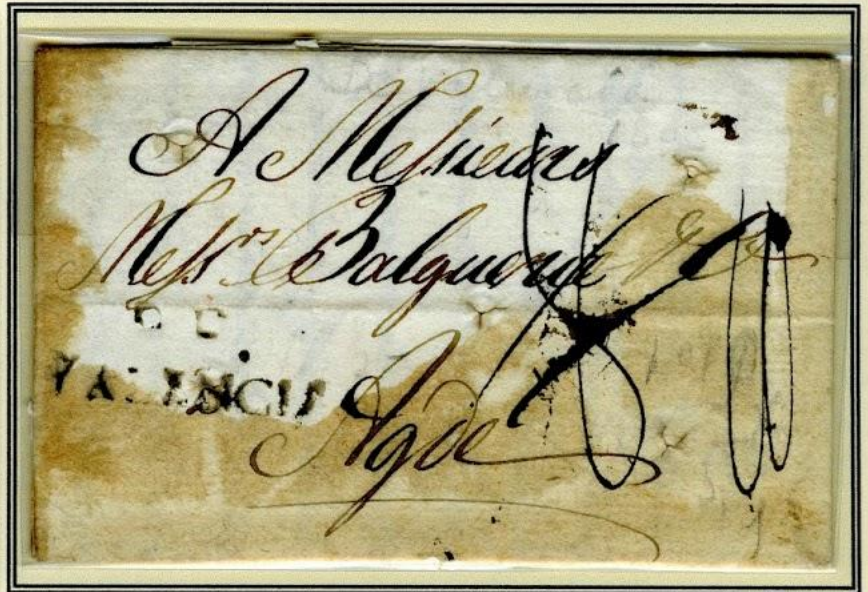 A Messieurs
Messrs. Balguerie & Ce
DE
VALENCIA
Agde